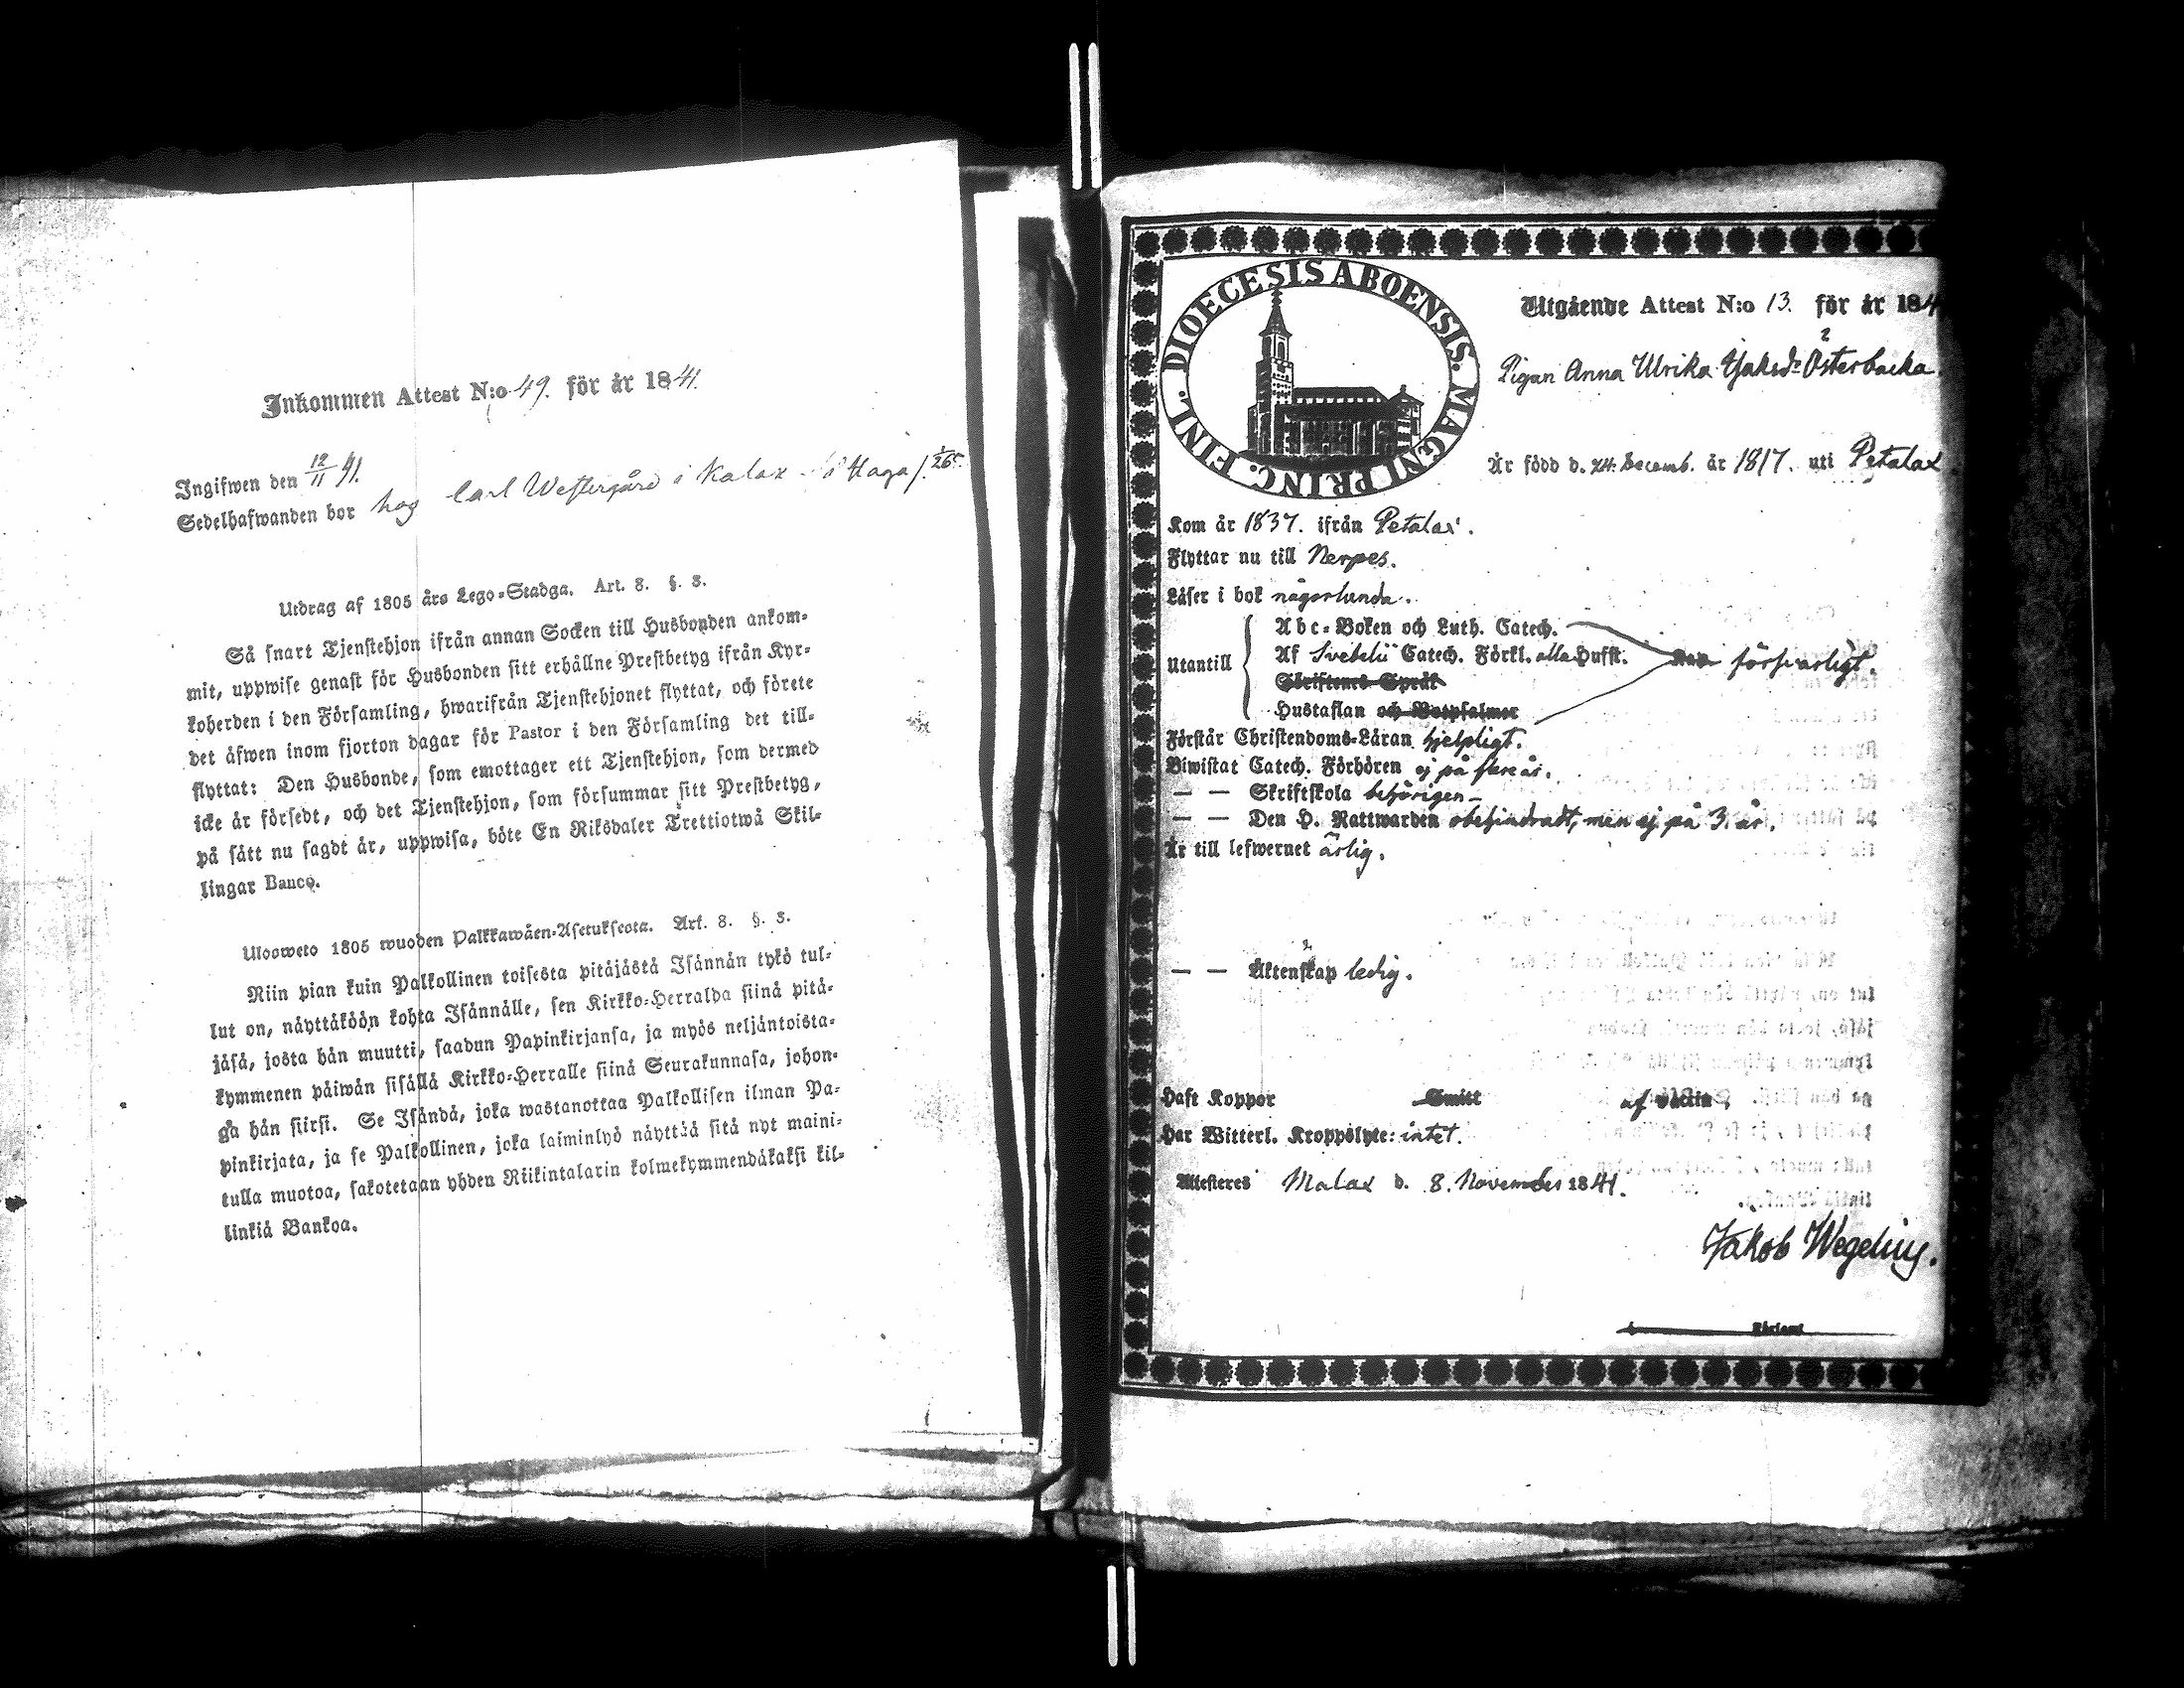 Inkommen Attest N:o 49. för år 1841.
Ingifwen den 12/11 41.
Sedelhafwanden bor hos Carl Westergård i Kalax
Utdrag af 1805 års Lego-Stadga. Art. 8. §. 3.
Så snart Tjenstehjon ifrån annan Socken till Husbonden ankom-
mit, uppwise genast för Husbonden sitt erhållne Prestbetyg ifrån Kyr-
koherden i den Församling, hwarifrån Tjenstehjonet flyttat, och förete
det äfwen inom fjorton dagar för Pastor i den Församling det till-
flyttat: Den Husbonde, som emottager ett Tjenstehjon, som dermed
icke är försedt, och det Tjenstehjon, som försummar sitt Prestbetyg,
på sätt nu sagdt är, uppwisa, böte En Riksdaler Trettiotwå Skil-
lingar Banco.
Ulosweto 1805 wuoden Palkkawäen-Asetuksesta. Art. 8. §. 3.
Niin pian kuin Palkollinen toisesta pitäjästä Isännän tykö tul-
lut on, näyttäköön kohta Isännälle, sen Kirkko-Herralda siinä pitä-
jäsä, josta hän muutti, saadun Papinkirjansa, ja myös neljäntoista-
kymmenen päiwän sisällä Kirkko-Herralle siinä Seurakunnasa, johon-
ga hän siirsi. Se Isändä, joka wastanottaa Palkollisen ilman Pa-
pinkirjata, ja se Palkollinen, joka laiminlyö näyttää sitä nyt maini-
tulla muotoa, sakotetaan yhden Riikintalarin kolmekymmendäkaksi kil-
linkiä Bankoa.
DIOECESIS ABOENSIS. MAGNI PRINC. FINL.
Utgående Attest N:o 13. för år 184
Pigan Anna Ulrika Jakobsd:r Österbacka
Är född d. 24. Decemb. år 1817. uti Petalax
Kom år 1837. ifrån Petalax.
Flyttar nu till Nerpes.
Läser i bok någorlunda.
Utantill
Abc-Boken och Luth. Catech.
Af Svebelii Catech. Förkl. alla Hufst.
försvarligt.
Skriftenes Språk
Hustaflan och Botpsalmer
Förstår Christendoms-Läran hjelpligt.
Biwistat Catech. Förhören ej på flere år.
— — Skriftskola behörigen –
— — Den H. Nattwarden obehindradt, men ej på 3. år.
Är till lefwernet ärlig.
— — Äktenskap ledig.
Haft Koppor Smitt af
Har Witterl. Kroppslyte: intet.
Attesteres Malax d. 8. November 1841.
Jakob Wegelius.